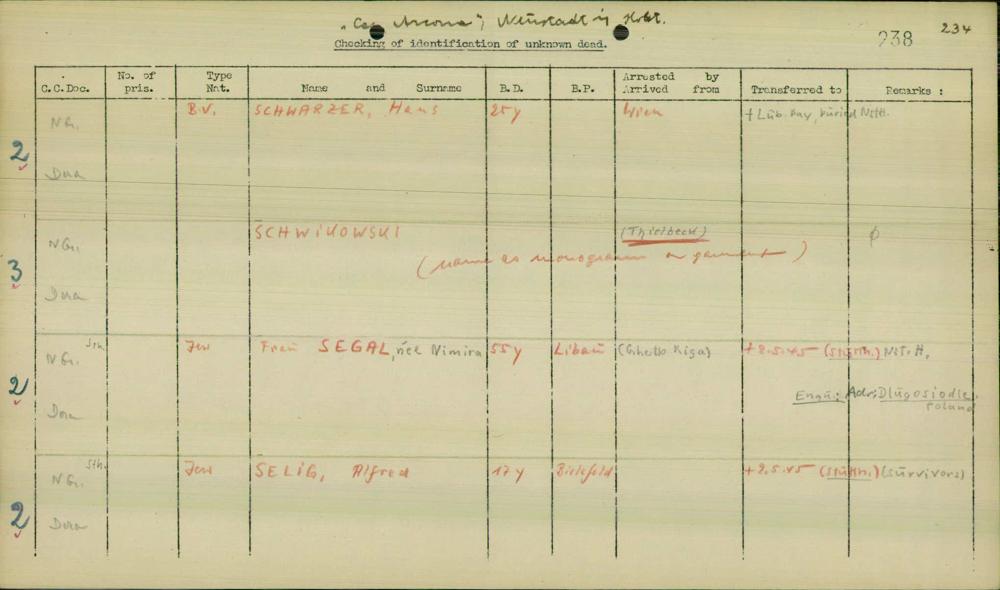 „Cap Arcona“, Neustadt i/ Holst.
238 234
Checking of identification of unknown dead.
C.C.Doc. No. of pris. Type Nat. Name and Surname B.D. B.P. Arrested by Arrived from Transferred to Remarks :
NG. B.V. SCHWARZER, Hans 25y Wien + Lüb. Bay, buried NstH.
2
Dora
NG. SCHWIKOWSKI (Thielbeck) ϕ
(name as monogram on garment)
3
Dora
NG. Sth. Jew Frau SEGAL, née Nimira 55y Libau (Ghetto Riga) + 2.5.45 (Stutth.) Nst.H.
2
Enqu: Adr: Dlugosiodle,
Dora Poland
NG. Sth. Jew SELIG, Alfred 17y Bielefeld + 2.5.45 (Stutth.) (survivors)
2
Dora